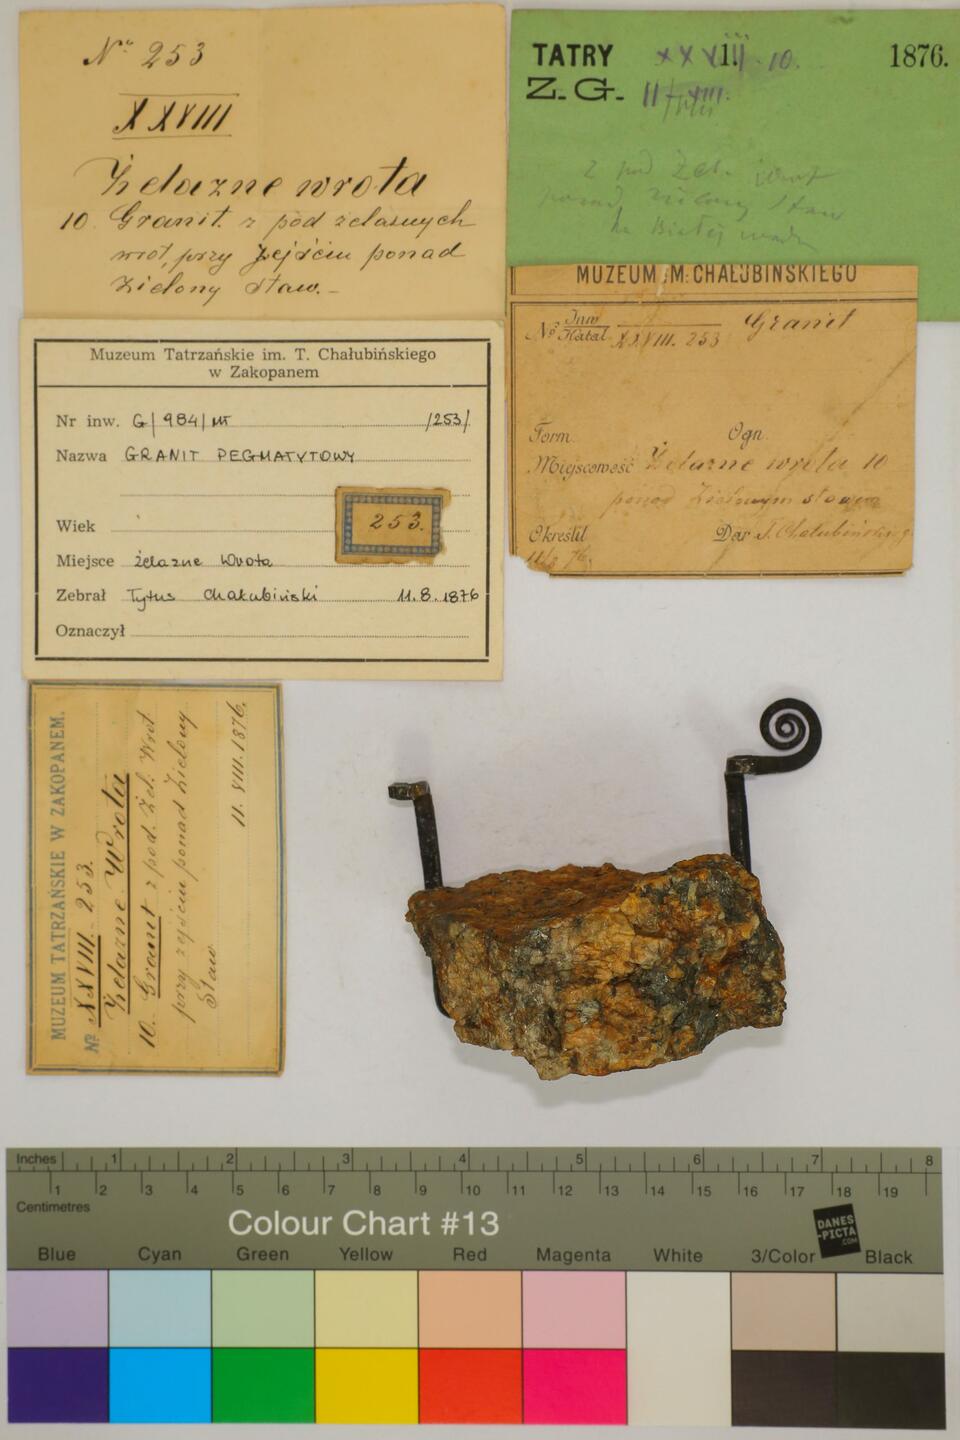 Nº 253
XXVIII
Żelazne wrota
10. Granit z pod żelaznych
wrot, przy zejściu ponad
Zielony Staw.–
TATRY XXVIII. 10. 1876.
Z. G. II
z pod Żel. Wrot
ponad Zielony Staw
MUZEUM IM. CHAŁUBIŃSKIEGO
Nº Inw Katal XXVIII. 253 Granit
Form. Ogn.
Miejscowość Żelazne wrota 10
ponad Zielonym stawem
Określił Dar T. Chałubińskiego
Muzeum Tatrzańskie im. T. Chałubińskiego
w Zakopanem
Nr inw. G/984/MT /253/
Nazwa GRANIT PEGMATYTOWY
Wiek
253.
Miejsce Żelazne Wrota
Zebrał Tytus Chałubiński 11.8.1876
Oznaczył
MUZEUM TATRZAŃSKIE W ZAKOPANEM.
Nº XXVIII. 253.
Żelazne Wrota
10. Granit z pod. Żel. Wrot
przy zejściu ponad Zielony
Staw
11. VIII. 1876.
Inches 1 2 3 4 5 6 7 8
1 2 3 4 5 6 7 8 9 10 11 12 13 14 15 16 17 18 19
Centimetres
Colour Chart #13
DANES
-PICTA
.COM
Blue Cyan Green Yellow Red Magenta White 3/Color Black